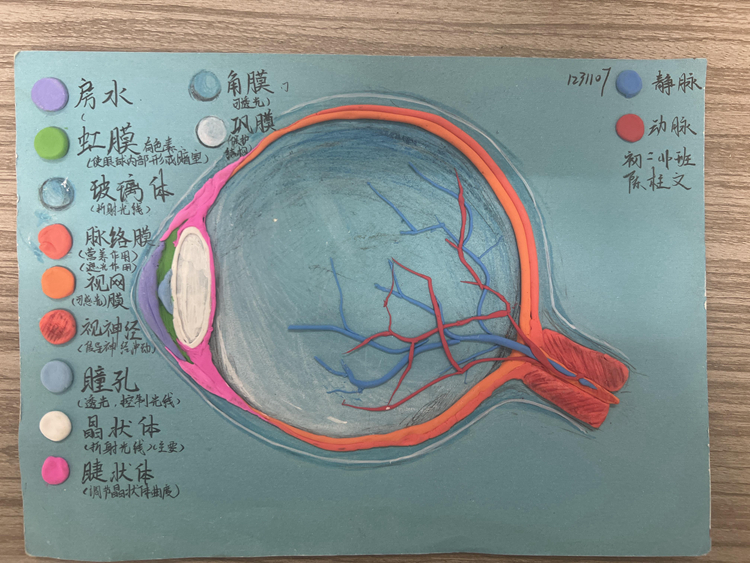 房水
(
虹膜 有色素
(使眼球内部形成暗室)
玻璃体
(折射光线)
脉络膜
(营养作用)
(遮光作用)
视网膜
(可感光)
视神经
(传导神经冲动)
瞳孔
(透光,控制光线)
晶状体
(折射光线)(主要)
睫状体
(调节晶状体曲度)
角膜
可透光)
巩膜
(保护
1231107
静脉
动脉
陈桂文